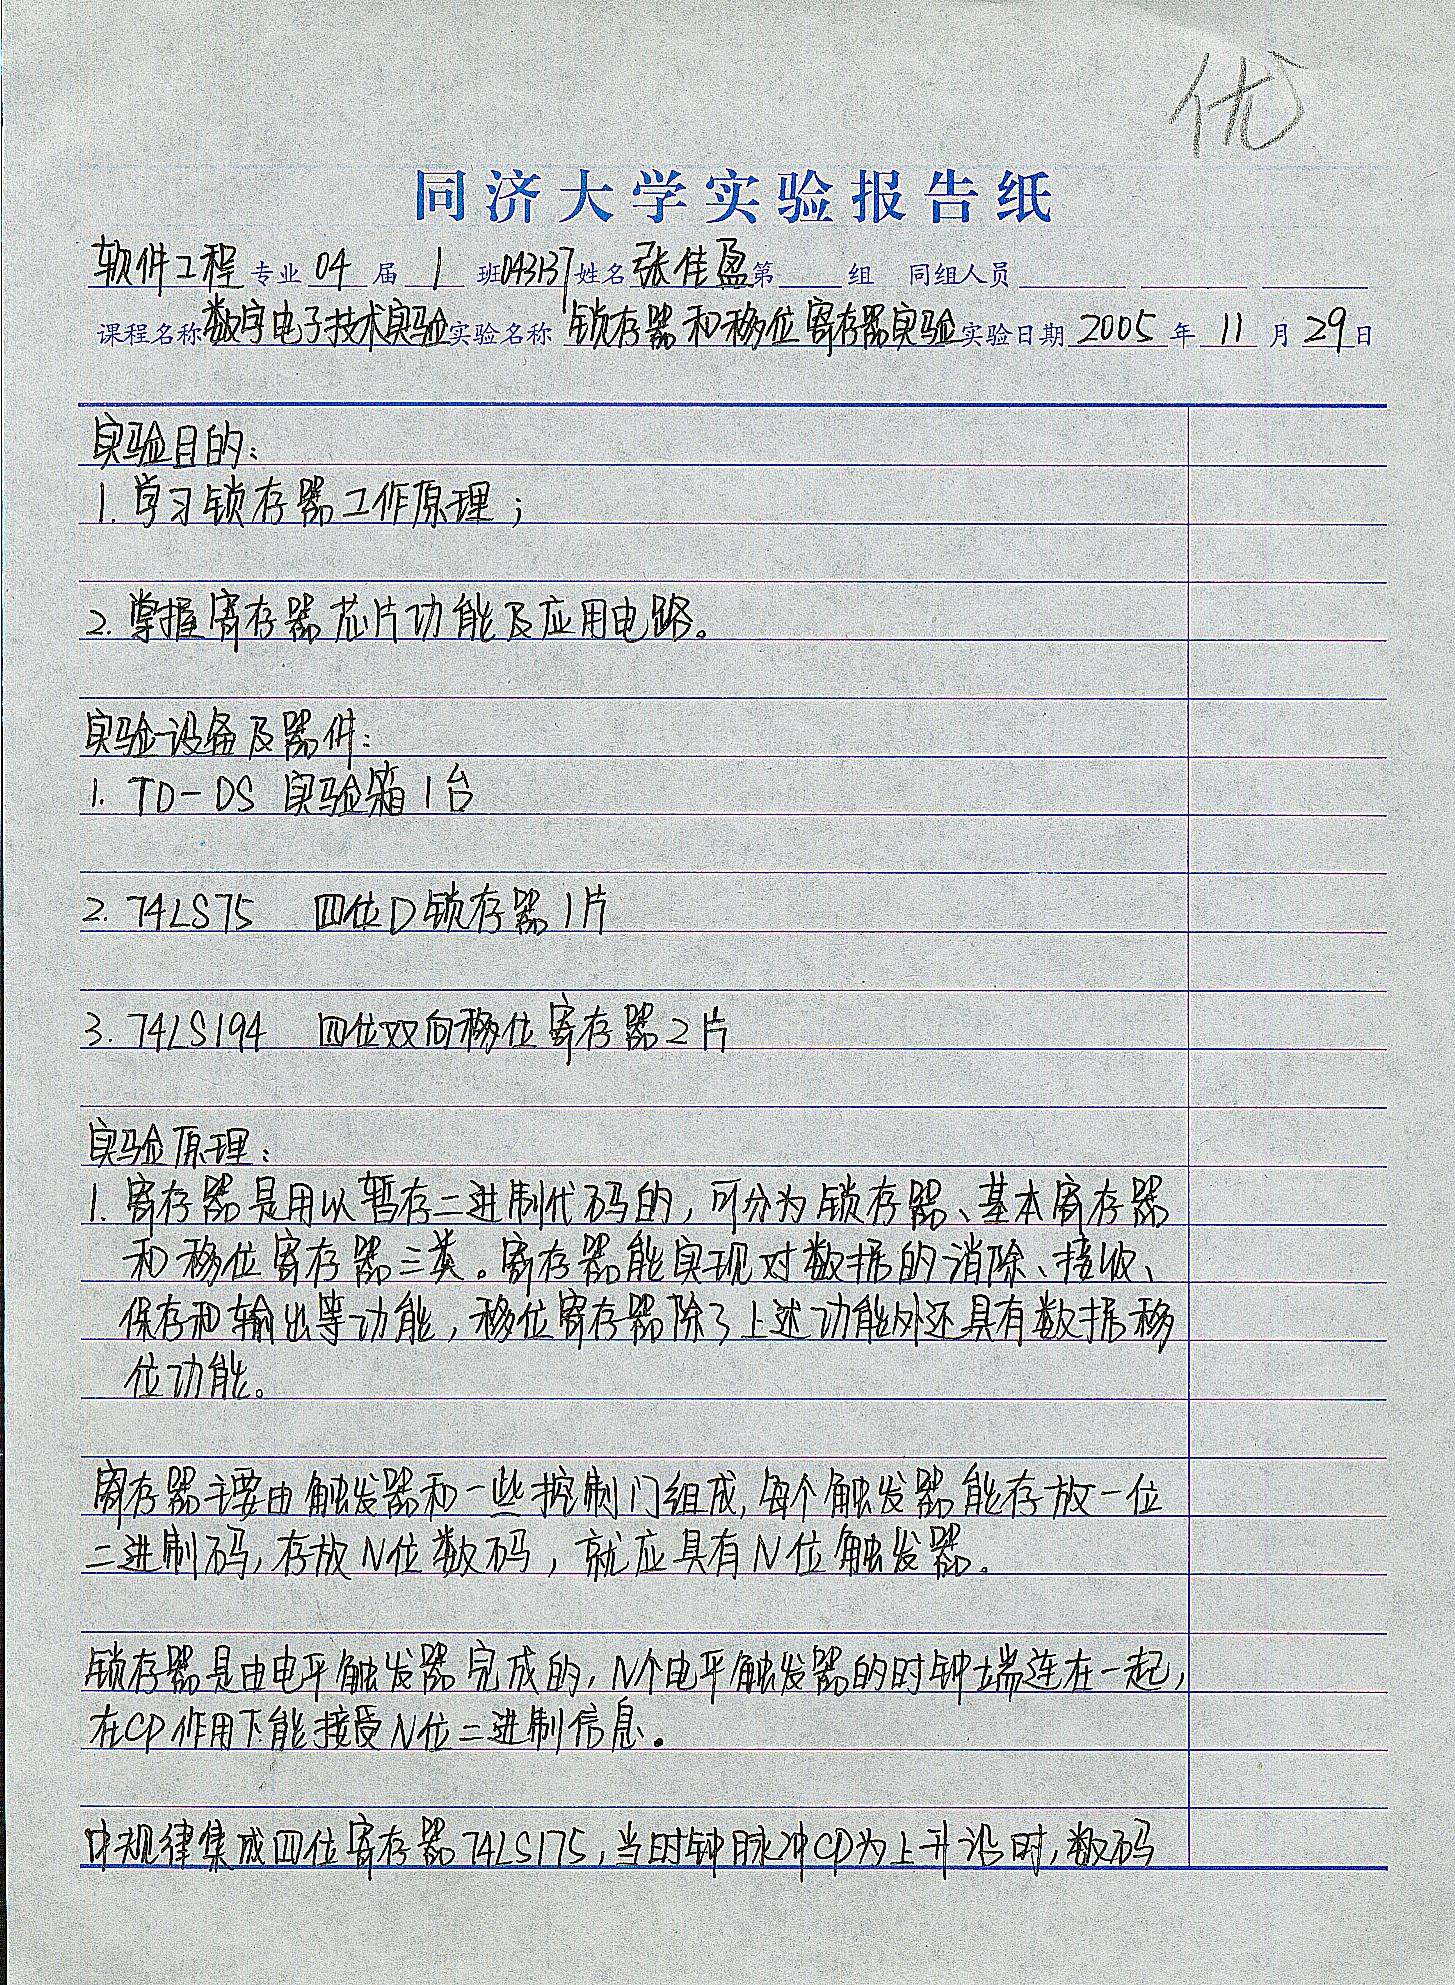 优
同济大学实验报告纸
软件工程 专业 04 届 1 班 043137 姓名 张佳盈 第 组 同组人员
课程名称 数字电子技术实验 实验名称 锁存器和移位寄存器实验 实验日期 2005 年 11 月 29 日
实验目的:
1. 学习锁存器工作原理;
2. 掌握寄存器芯片功能及应用电路。
实验设备及器件:
1. TD-DS 实验箱1台
2. 74LS75 四位D锁存器1片
3. 74LS194 四位双向移位寄存器2片
实验原理:
1. 寄存器是用以暂存二进制代码的, 可分为锁存器、基本寄存器
和移位寄存器三类。寄存器能实现对数据的消除、接收、
保存和输出等功能, 移位寄存器除了上述功能外还具有数据移
位功能。
寄存器主要由触发器和一些控制门组成, 每个触发器能存放一位
二进制码, 存放N位数码, 就应具有N位触发器。
锁存器是由电平触发器完成的, N个电平触发器的时钟端连在一起,
在CP作用下能接受N位二进制信息。
中规律集成四位寄存器74LS175, 当时钟脉冲CP为上升沿时, 数码